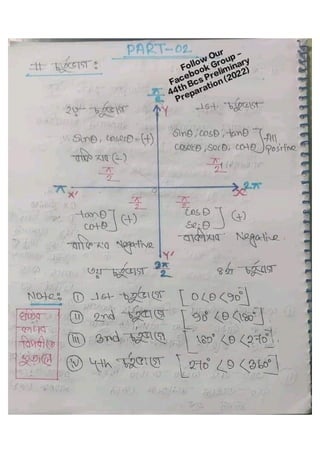 PART-02
Follow Our
Facebook Group -
44th Bcs Preliminary
Preparation (2022)
# চতুর্ভাগ :
π/2
Y
২য় চতুর্ভাগ
1st চতুর্ভাগ
sinθ, cosecθ = (+)
বাকি সব (-)
sinθ, cosθ, tanθ
cosecθ, secθ, cotθ
All
Positive
π/2
π/2
π
X'
X
2π
π/2
π/2
tanθ
cotθ
(+)
বাকি সব Negative
cosθ
secθ
(+)
Negative
Y'
3π/2
৩য় চতুর্ভাগ
৪র্থ চতুর্ভাগ
Note:
(i) 1st চতুর্ভাগে [0<θ<90°]
(ii) 2nd চতুর্ভাগে [90°<θ<180°]
(iii) 3nd চতুর্ভাগে [180°<θ<270°].
(iv) 4th চতুর্ভাগে [270°<θ<360°]
ঘড়ির
কাটার
বিপরীতে